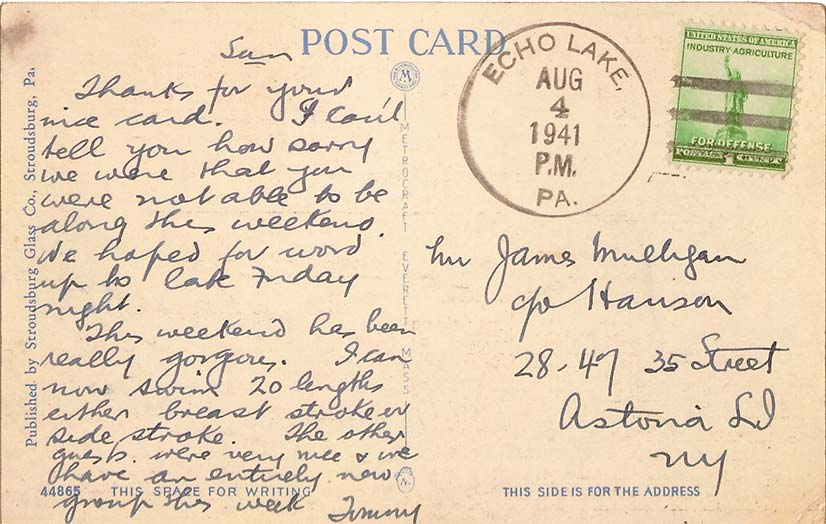 POST CARD
Sun
Thanks for your
nice card. I can't
tell you how sorry
we were that you
were not able to be
along this weekend.
We hoped for word
up to late Friday
night.
This weekend has been
really gorgeous. I can
now swim 20 lengths
either breast stroke or
side stroke. The other
guests were very nice & we
have an entirely new
group this week Tommy
44865 THIS SPACE FOR WRITING
Published by Stroudsburg Glass Co., Stroudsburg, Pa.
M
METROCRAFT EVERETT MASS
ECHO LAKE,
AUG
4
1941
P.M.
PA.
UNITED STATES OF AMERICA
INDUSTRY-AGRICULTURE
FOR DEFENSE
POSTAGE 1 CENT
Mr James Mulligan
c/o Hanson
28-47 35 Street
Astoria LI
NY
THIS SIDE IS FOR THE ADDRESS